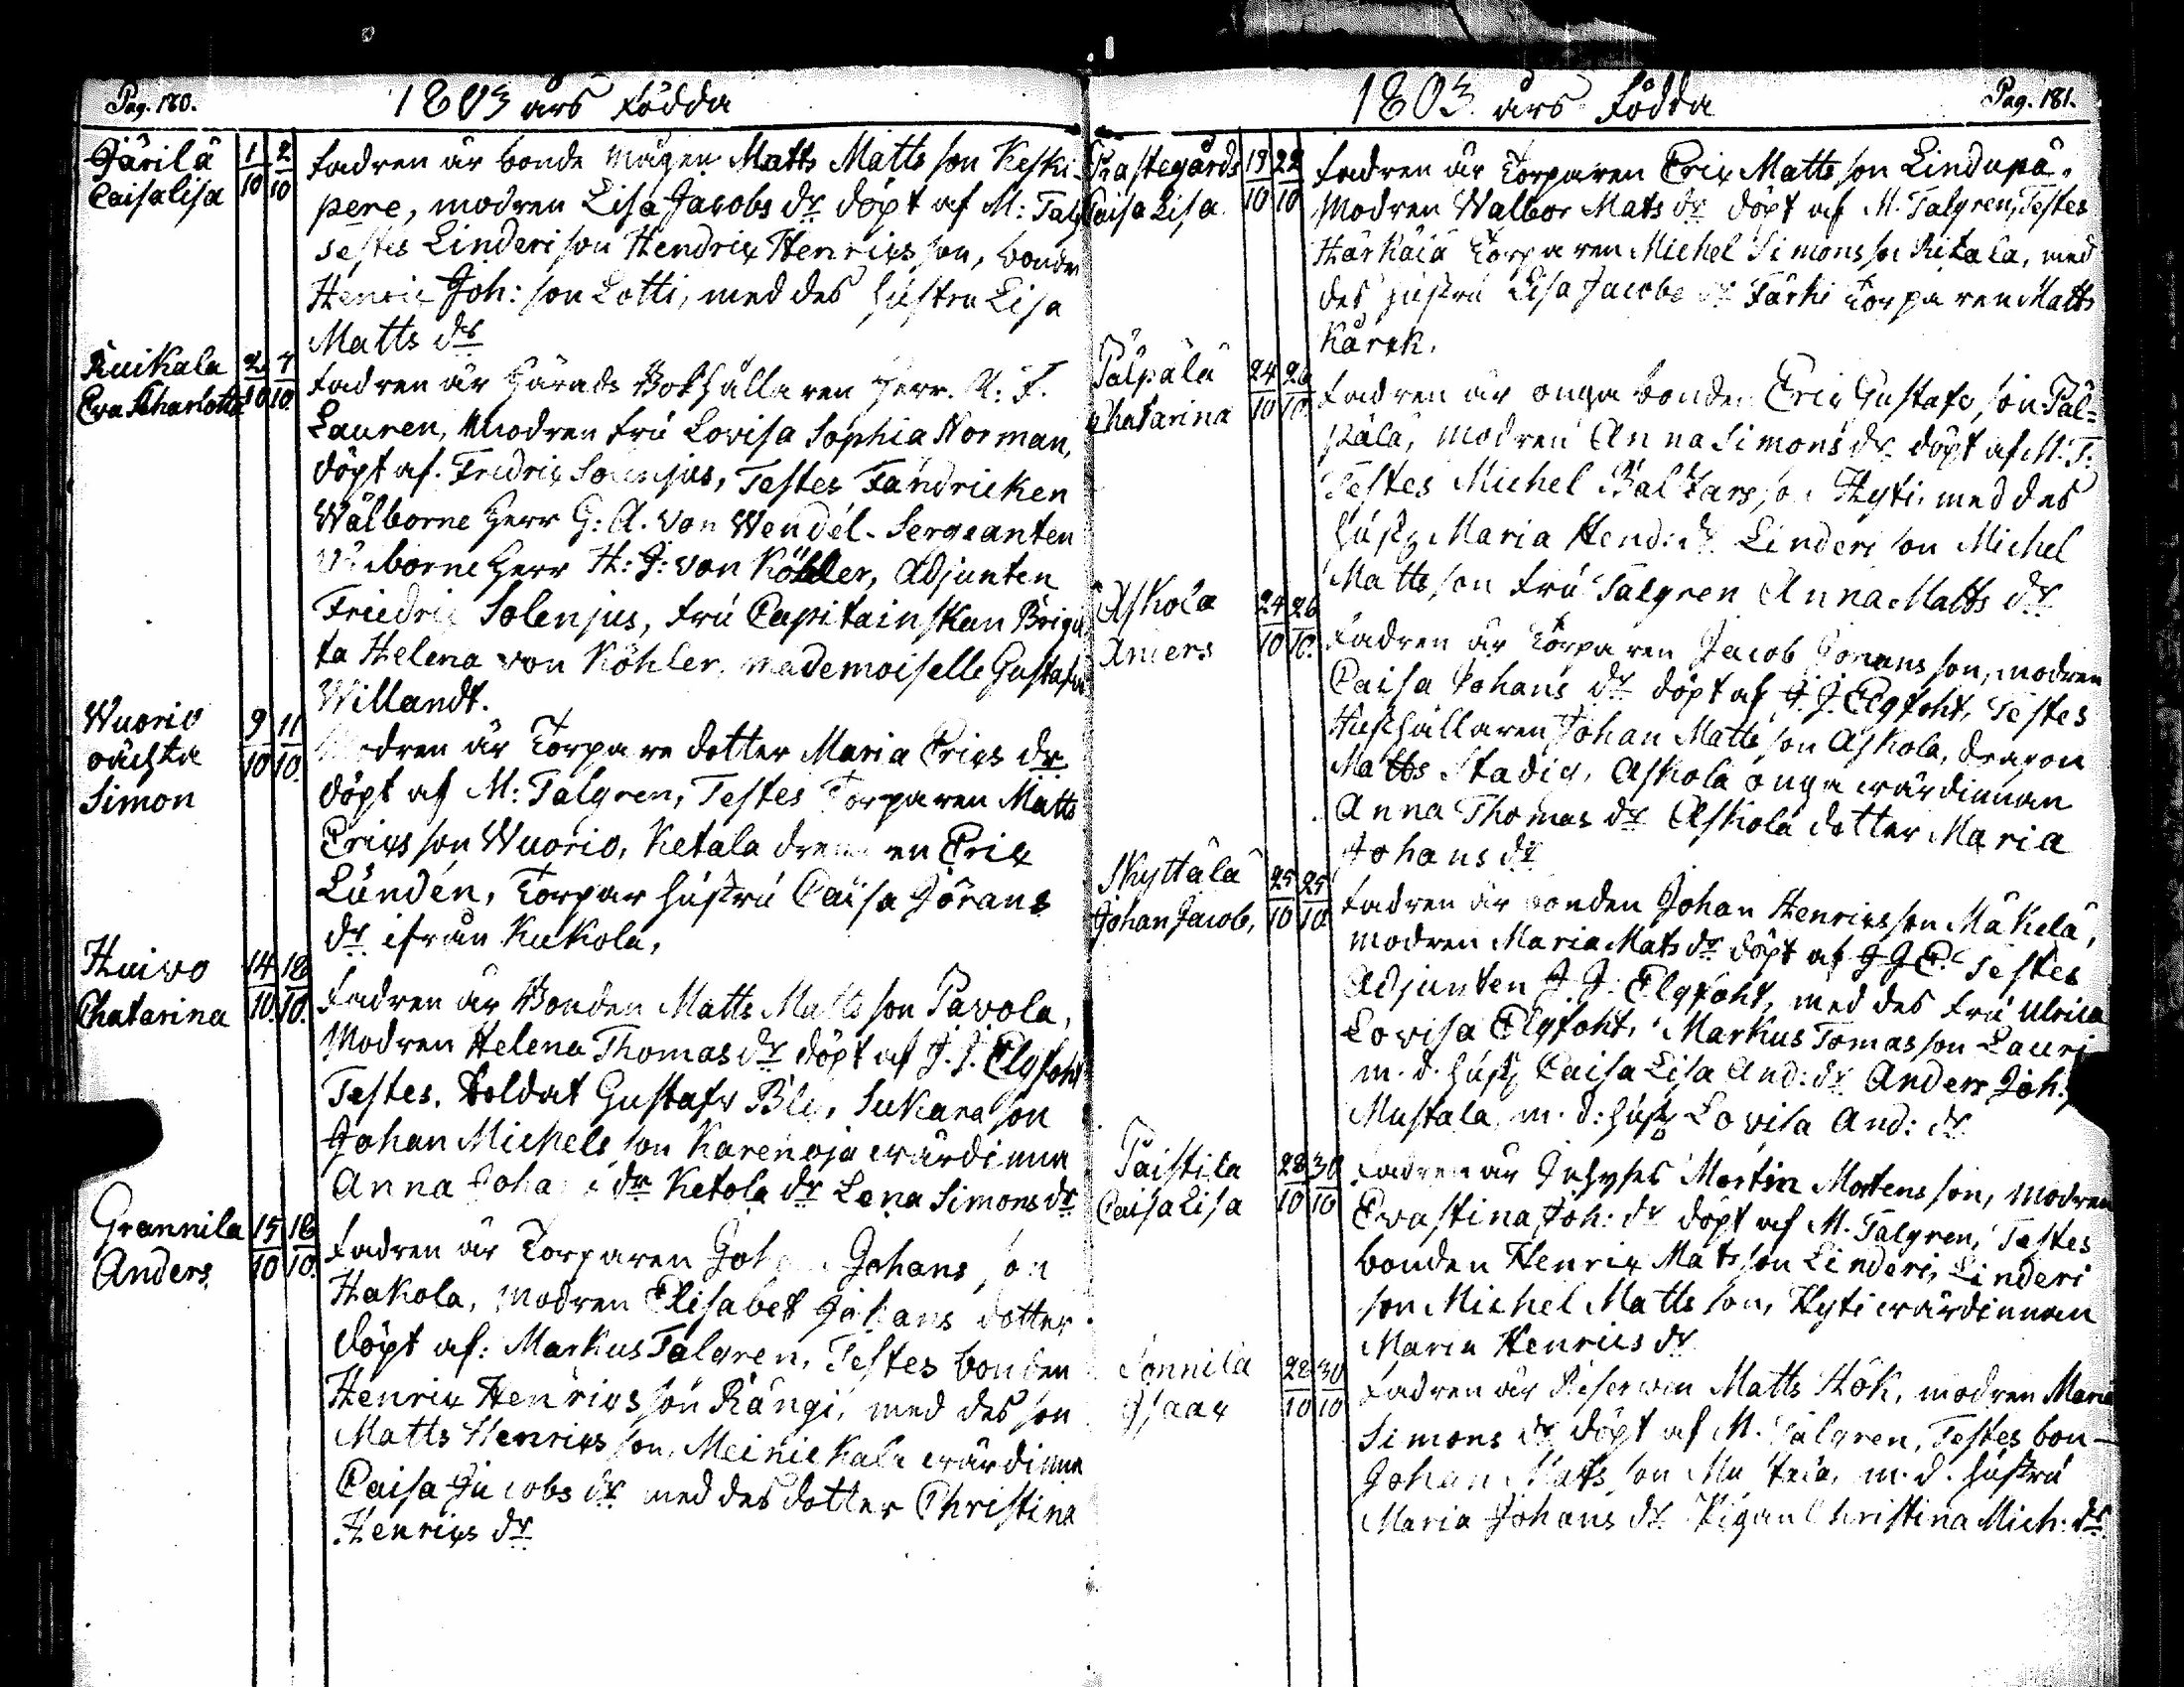 Pag. 180.
1803 års födda
Järilä
Caisa Lisa
1/10 2/10
fadren är bonde mågen Matts Matts son Keski-
pere, modren Lisa Jacobs dr döpt af M: Talg
Testes Linderi son Hendrix Henrixs son, bonden
Henrix Joh: son Lotti, med des hustru Lisa
Matts dr
Kuikala
Eva Scharlotta
2/10 7/10
fadren är Härads Bokhållaren Herr A: F.
Lauren, modren fru Lovisa Sophia Norman,
döpt af. Fredrix Solenjus, Testes Fändricken
Wälborne Herr G: A. von Wendel. Sergeanten
borne Herr H: J: von Köhler, Adjunten
Friedrix Solenjus, fru Capitainskan Brigi
ta Helena von Köhler, mademoiselle Gustafva
Willandt.
Wuorio
oächta
Simon
9/10 11/10
Modren är Torpare dotter Maria Erixs dr
döpt af M: Talgren, Testes Torparen Matts
Erixs son Wuorio, Ketala drengen Erix
Lunden, Torpar hustru Caisa Jörans
dr ifrån Kukola,
Huivo
Chatarina
14/10 18/10
fadren är Bonden Matts Matts son Pavola,
Modren Helena Thomas dr döpt af J. J. Elgfoht
Testes, Soldat Gustafv Bli, Sukara son
Johan Michels son Karenoja wärdinna
Anna Johans dr Ketola dr Lena Simons dr
Grannila
Anders
15/10 16/10
fadren är Torparen Johan Johans son
Hakola, modren Elisabet Johans dotter
döpt af: Markus Talgren, Testes bonden
Henrix Henrixs son Rängi, med des son
Matts Henrixs son, Meinickala wärdinna
Caisa Jacobs dr med des dotter Christina
Henrixs dr
1803 års födda
Pag. 181.
Prästegårds
Caisa Lisa
19/10 22/10
fadren är Torparen Erix Matts son Lindupä,
Modren Walbor Mats dr döpt af M. Talgren, Testes
Härkälä Torparen Michel Simons son Kitala, med
des hustru Lisa Jacobs dr Färki Torparen Matts
Karek.
Pälpälä
Chatarina
24/10 26/10
fadren är unga bonden Erix Gustafs son Päl-
pälä, modren Anna Simons dr döpt af M. T.
Testes Michel Baltzars son Hyti, med des
hust Maria Hend: dr Linderi son Michel
Matts son fru Talgren Anna Matts dr
Askola
Anders
24/10 26/10
fadren är Torparen Jacob Jörans son, modren
Caisa Johans dr döpt af J. J. Elgfoht, Testes
Hushållaren Johan Matts son Askola, dragon
Matts Stadig, Askola unga wärdinnan
Anna Thomas dr Askola dotter Maria
Johans dr
Skyttälä
Johan Jacob,
25/10 25/10
fadren är bonden Johan Henrixs son Mäkelä,
modren Maria Mats dr döpt af J J E. Testes
Adjunten J. J. Elgfoht, med des fru Ulrica
Lovisa Elgfoht, Markus Tomas son Lauri
m. d. hust Caisa Lisa And: dr Anders Joh:
Mustala, m. d: hust Lovisa And: dr
Taistila
Caisa Lisa
28/10 30/10
fadren är Inhyses Mortin Mortens son, modren
Eva stina Joh: dr döpt af M. Talgren, Testes
bonden Henrix Mats son Linderi, Linderi
son Michel Matts son, Hyti wärdinnan
Maria Henrics dr
Sonnila
Isaax
28/10 30/10
fadren är Reserven Matts Hök, modren Maria
Simons dr döpt af M. Talgren, Testes bon-
Johan Mats son Mustala, m. d. hustru
Maria Johans dr Pigan Christina Mich: dr